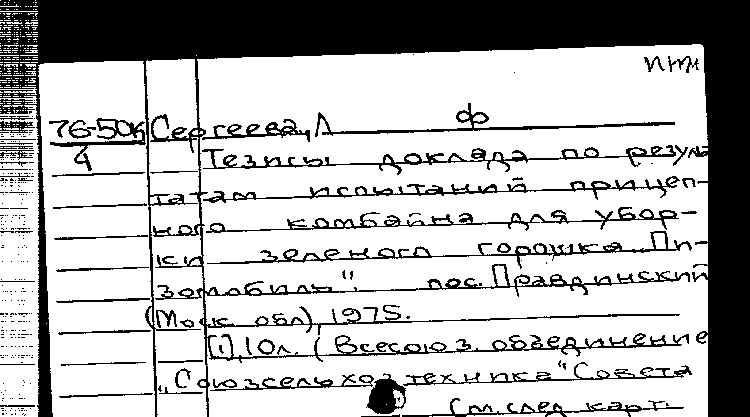 ф
76-50к Сергеева, Л
4 Тезисы доклада по резуль
татам испытаний прицеп-
ного комбайна для убор-
ки зеленого горошка „Пи-
зомобиль". пос. Правдинский
(Моск. обл), 1975.
[1], 10л. (Всесоюз. объединение
„Союзсельхозтехника" Совета
См. след. карт.